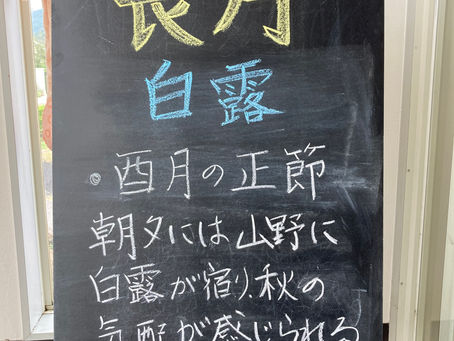 長月
白露
・酉月の正節
朝夕には山野に
白露が宿り、秋の
気配が感じられる